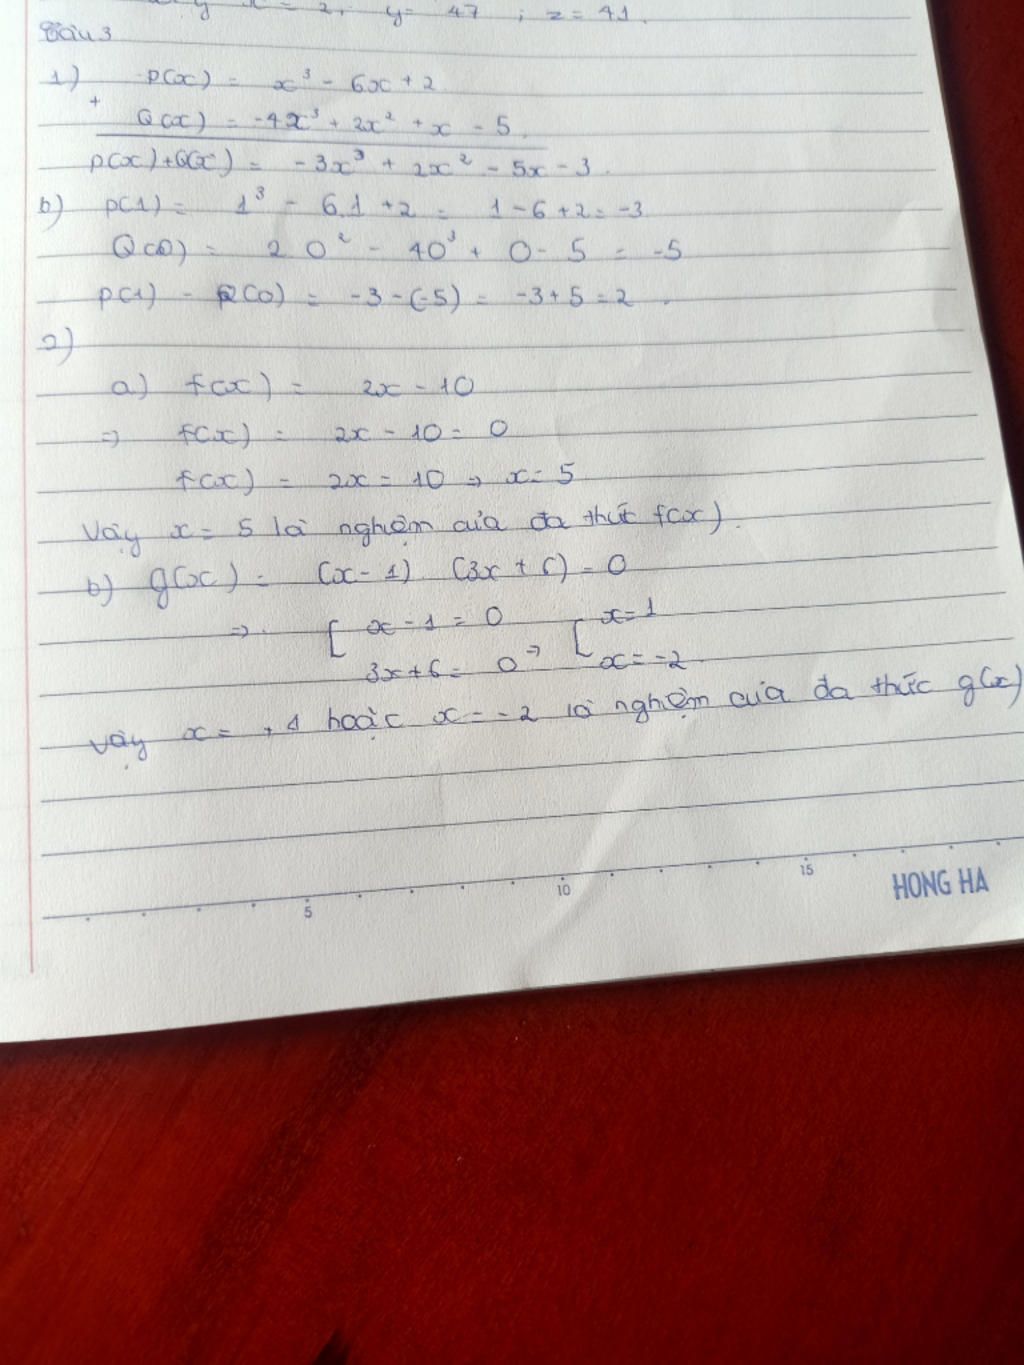 y x = 2, y = 47 ; z = 41.
Câu 3
1) P(x) = x³ - 6x + 2
+
Q(x) = -4x³ + 2x² + x - 5
P(x)+Q(x) = -3x³ + 2x² - 5x - 3.
b) P(1) = 1³ - 6.1 + 2 = 1 - 6 + 2 = -3
Q(0) = 2 0² - 40³ + 0 - 5 = -5
P(1) - Q(0) = -3 - (-5) = -3 + 5 = 2.
2)
a) f(x) = 2x - 10
=> f(x) = 2x - 10 = 0
f(x) = 2x = 10 => x = 5
Vậy x = 5 là nghiệm của đa thức f(x).
b) g(x) = (x - 1) (3x + 6) = 0
=> [ x - 1 = 0 [ x = 1
3x + 6 = 0 => x = -2
Vậy x = 1 hoặc x = -2 là nghiệm của đa thức g(x)
5 10 15
HONG HA